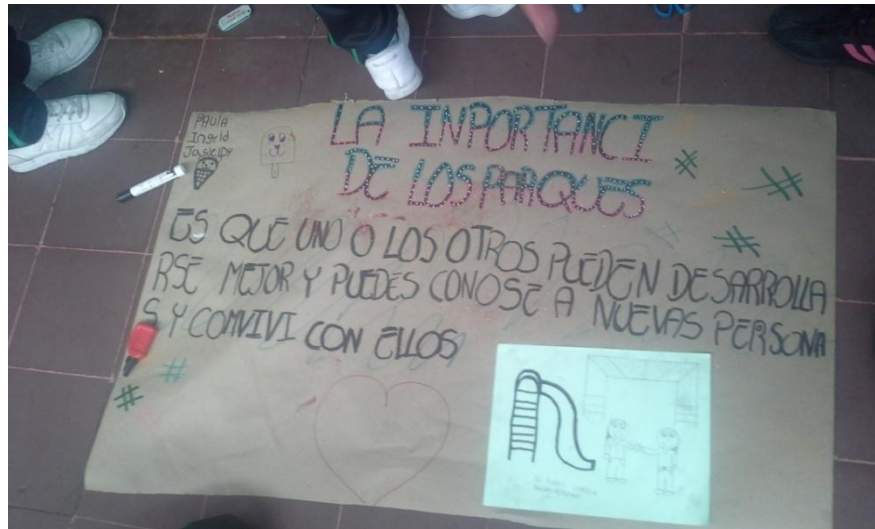 PAULA
Ingrid
LA INPORTANCI
DE LOS PARQUES
ES QUE UNO O LOS OTROS PUEDEN DESARROLLA
RSE MEJOR Y PUEDES CONOSE A NUEVAS PERSONA
S Y COMVIVI CON ELLOS